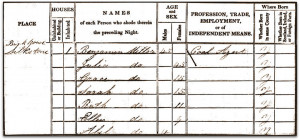 PLACE
HOUSES
Uninhabited or Building
Inhabited
NAMES
of each Person who abode therein the preceding Night.
AGE and SEX
Males
Females
PROFESSION, TRADE, EMPLOYMENT, or of INDEPENDENT MEANS.
Where Born
Whether Born in same County
Whether Born in Scotland, Ireland, or Foreign Parts.
1 Benjamin Miller 45 Coal Agent
Julia do 45
Grace do 15
Sarah do 15
Ruth do 11
Ellen do 9
do